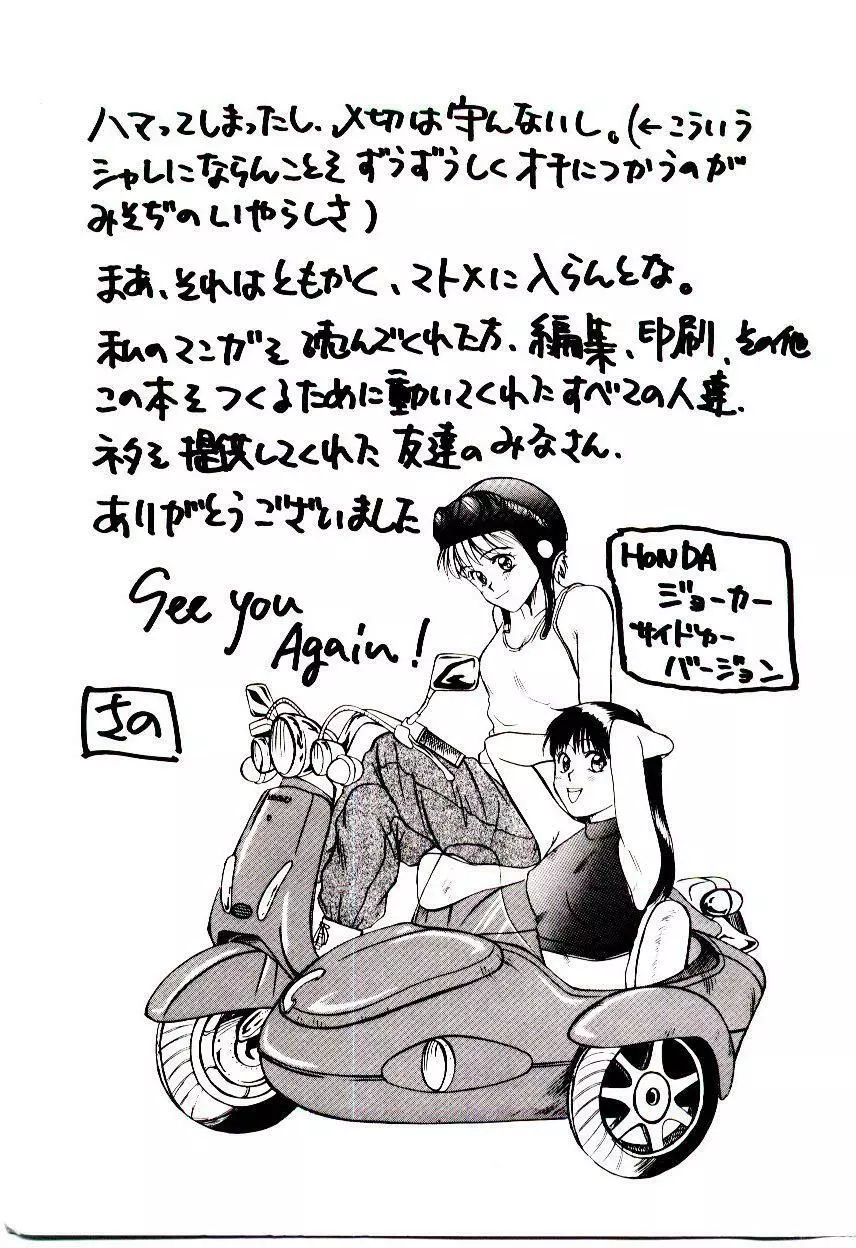 ハマってしまったし、〆切は守んないし。(←こういう
シャレにならんことをずうずうしくオチにつかうのが
みそぢのいやらしさ)
まあ、それはともかく、マトメに入らんとな。
私のマンガを読んでくれた方、編集、印刷、その他
この本をつくるために動いてくれたすべての人達、
ネタを提供してくれた友達のみなさん、
ありがとうございました
See you
Again!
さの
HONDA
ジョーカー
サイドカー
バージョン